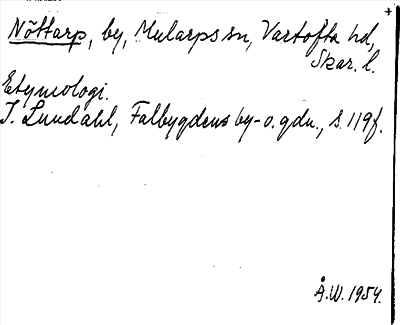 Nöttarp, by, Mularps sn, Vartofta hd,
Skar. l.
Etymologi.
I. Lundahl, Falbygdens by- o. gdn., s. 119f.
Å.W. 1954.